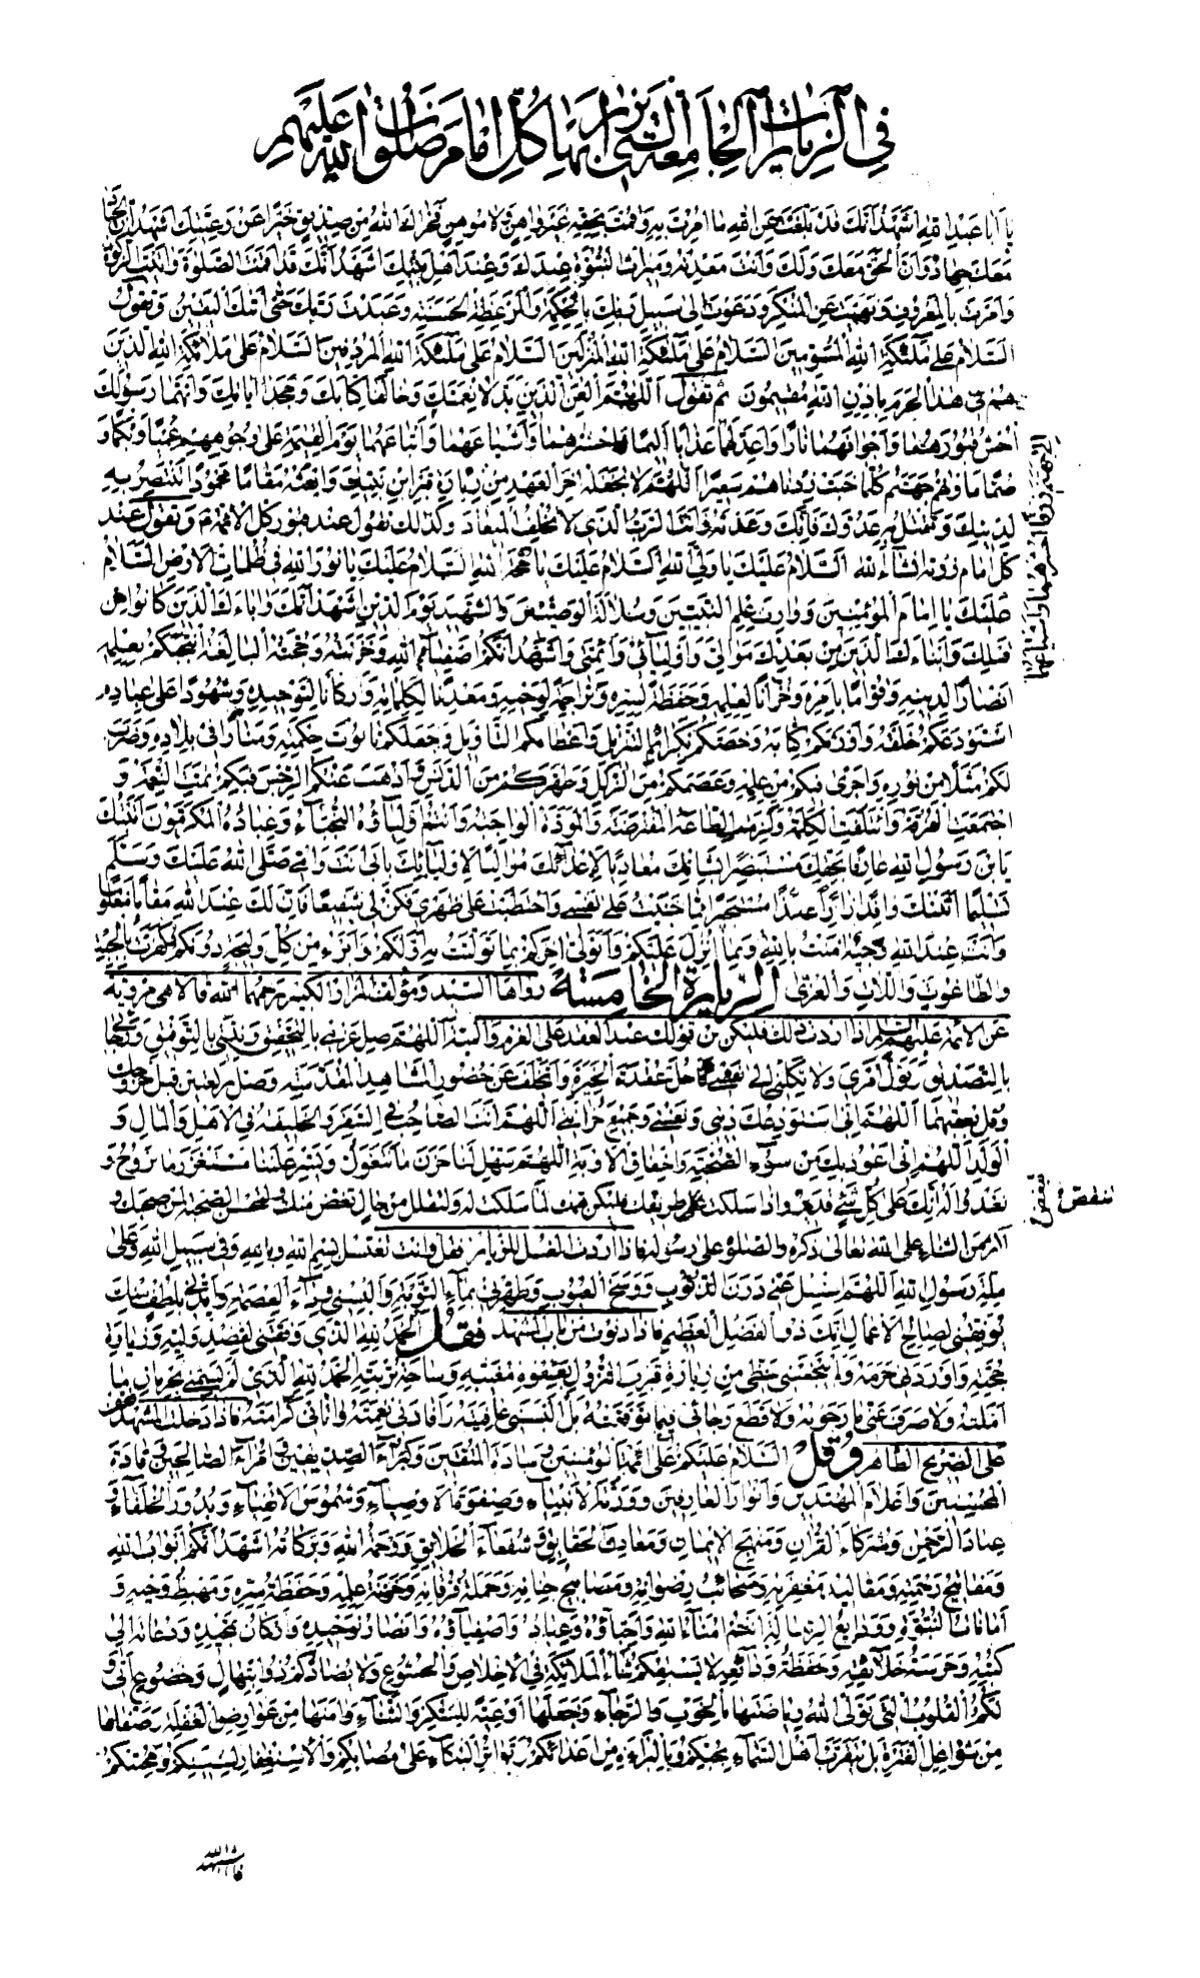 في الزيارات الجامعة التي يزار بها كل امام صلوات الله عليهم
يا ابا عبد الله اشهد انك قد بلغت عن الله ما امرت به وقمت بحقه غير واهن ولا موهن فجزاك الله من صديق خيرا عن رعيتك اشهد ان الجهاد
معك جهاد وان الحق معك ولك وانت معدنه وميراث النبوة عندك وعند اهل بيتك اشهد انك قد اقمت الصلوة واتيت الزكوة
وامرت بالمعروف ونهيت عن المنكر ودعوت الى سبيل ربك بالحكمة والموعظة الحسنة وعبدت ربك حتى اتيك اليقين وتقول
السلام على ملئكة الله المسومين السلام على ملئكة الله المنزلين السلام على ملئكة الله المردفين السلام على ملائكة الله الذين
هم في هذا الحرم باذن الله مقيمون ثم تقول اللهم العن الذين بدلا نعمتك وخالفا كتابك وجحدا اياتك واتهما رسولك
احش قبورهما واجوافهما نارا واعد لهما عذابا اليما واحشرهما واشياعهما واتباعهما يوم القيمة على وجوههم عميا وبكما و
صما ماويهم جهنم كلما خبت زدناهم سعيرا اللهم لا تجعله اخر العهد من زيارة قبر ابن نبيك وابعثه مقاما محمودا تنتصر به
لدينك وتقتل به عدوك فانك وعدته وانت الرب الذي لا تخلف الميعاد وكذلك تقول عند قبور كل الائمة وتقول عند
كل امام زرته انشاء الله السلام عليك يا ولي الله السلام عليك يا حجة الله السلام عليك يا نور الله في ظلمات الارض السلام
عليك يا امام المؤمنين ووارث علم النبيين وسلالة الوصيين والشهيد يوم الدين اشهد انك واباءك الذين كانوا من
قبلك وابناءك الذين من بعدك موالي واوليائي وائمتي واشهد انكم اصفياء الله وخزنته وحجته البالغة انتجبكم بعلمه
انصارا لدينه وقواما بامره وخزانا لعلمه وحفظة لسره وتراجمة لوحيه ومعدنا لكلماته واركانا لتوحيده وشهودا على عباده
استودعكم خلقه واورثكم كتابه وخصكم بكرائم التنزيل واعطاكم التاويل وجعلكم تابوت حكمته ومنارا في بلاده وضرب
لكم مثلا من نوره واجرى فيكم من علمه وعصمكم من الزلل وطهركم من الدنس واذهب عنكم الرجس فبكم تمت النعمة و
اجتمعت الفرقة وائتلفت الكلمة ولزمت الطاعة المفترضة والمودة الواجبة وانتم اولياؤه النجباء وعباده المكرمون اتيتك
يابن رسول الله عارفا بحقك مستبصرا بشانك معاديا لاعدائك مواليا لاوليائك بابي انت وامي صلى الله عليك وسلم
تسليما اتيتك وافدا زائرا عائذا مستجيرا مما جنيت على نفسي واحتطبت على ظهري فكن لي شفيعا فان لك عند الله مقاما معلوما
وانت عند الله وجيه امنت بالله وبما انزل عليكم واتولى اخركم بما توليت به اولكم وابرء من كل وليجة دونكم وكفرت بالجبت
والطاغوت واللات والعزى الزيارة الخامسة رواها السيد ومؤلف المزار الكبير رحمهما الله قالا هي مروية
عن الائمة عليهم السلام اذا اردت ذلك فليكن من قولك عند العقد على العزم والنية اللهم صل عزمي بالتحقيق ونيتي بالتوفيق ورجائي
بالتصديق وتول امري ولا تكلني الى نفسي فاحل عقدة الحيرة واتخلف عن حضور المشاهد المقدسة وصل ركعتين قبل خروجك
وقل بعقبهما اللهم اني استودعك ديني ونفسي وجميع حزانتي اللهم انت الصاحب في السفر والخليفة في الاهل والمال و
الولد اللهم اني اعوذ بك من سوء الصحبة واخفاق الاوبة اللهم سهل لنا حزن ما نتغول ويسر علينا مستغزر ما نروح و
نغدو له انك على كل شيء قدير واذا سلكت على طريقك فليكن همك لما سلكت له ولتقلل من حال تغض منك ولتحسن الصحبة لمن صحبك و
اكثر من الثناء على الله تعالى ذكره والصلوة على رسوله فاذا اردت الغسل للزيارة فقل وانت تغتسل بسم الله وبالله وفي سبيل الله وعلى
ملة رسول الله اللهم اغسل عني درن الذنوب ووسخ العيوب وطهرني بماء التوبة والبسني رداء العصمة وايدني بلطف منك
توفقني لصالح الاعمال انك ذو الفضل العظيم فاذا دنوت من باب المشهد فقل الحمد لله الذي وفقني لقصد وليه وزيارة
حجته واوردني حرمه ولم يبخسني حظي من زيارة قبره والنزول بعقوة مغيبه وساحة تربته الحمد لله الذي لم يسمني بحرمان ما
املته ولا صرف عني ما رجوته ولا قطع رجائي فيما توقعته بل البسني عافيته وافادني نعمته واتاني كرامته فاذا دخلت المشهد فقف
على الضريح الطاهر وقل السلام عليكم ائمة المؤمنين وسادة المتقين وكبراء الصديقين وامراء الصالحين وقادة
المحسنين واعلام المهتدين وانوار العارفين وورثة الانبياء وصفوة الاوصياء وشموس الاتقياء وبدور الخلفاء و
عباد الرحمن وشركاء القران ومنهج الايمان ومعادن الحقايق وشفعاء الخلايق ورحمة الله وبركاته اشهد انكم ابواب الله
ومفاتيح رحمته ومقاليد مغفرته وسحائب رضوانه ومصابيح جنانه وحملة فرقانه وخزنة علمه وحفظة سره ومهبط وحيه و
امانات النبوة وودائع الرسالة انتم امناء الله واحباؤه وعباده واصفياؤه وانصار توحيده واركان تمجيده ودعاته الى
كتبه وحرسة خلائقه وحفظة ودائعه لا يسبقكم ثناء الملائكة في الاخلاص والخشوع ولا يضادكم ذو ابتهال وخضوع انى و
لكم القلوب التي تولى الله رياضتها بالخوف والرجاء وجعلها اوعية للشكر والثناء وامنها من عوارض الغفلة وصفاها
من شواغل الفترة بل يتقرب اهل السماء بحبكم وبالبراءة من اعدائكم وتواتر البكاء على مصابكم والاستغفار لشيعتكم ومحبيكم
واحشرهما واشياعهما
تنقص
تغض
فاشهد الله